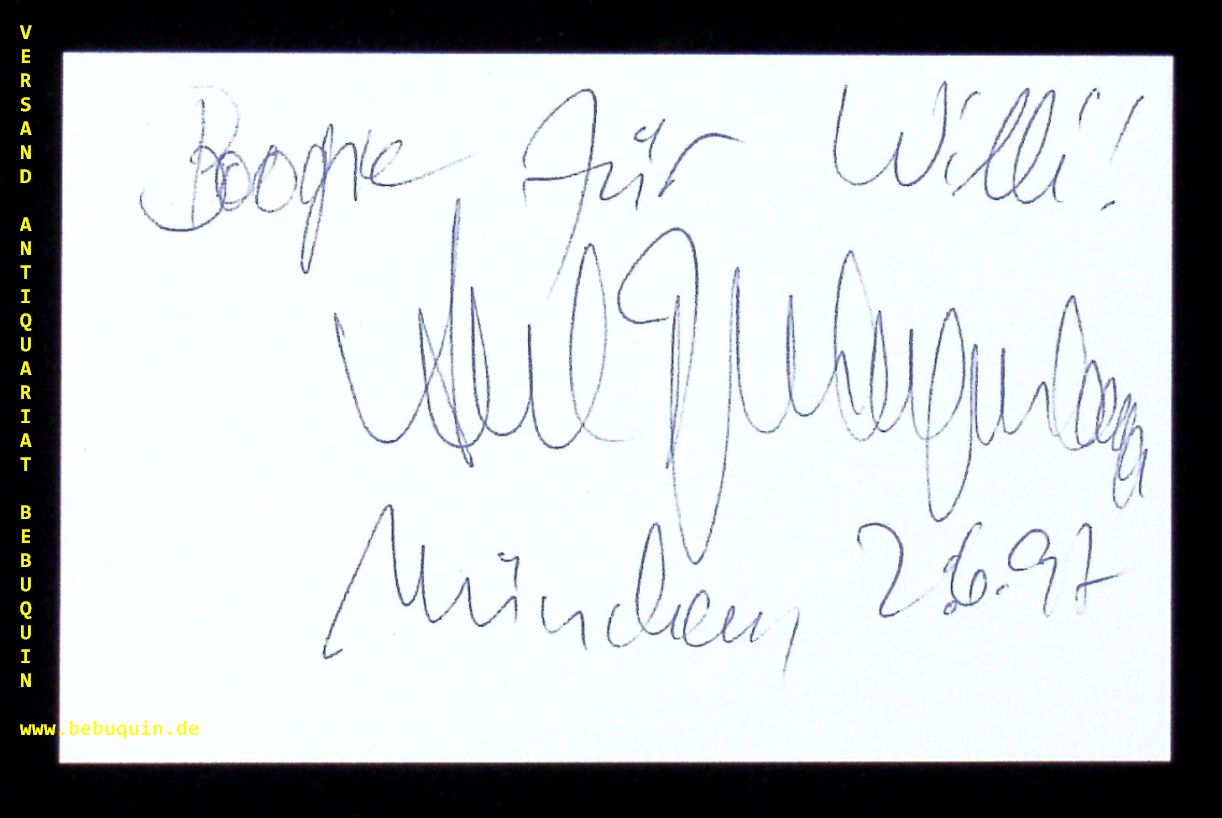 VERSAND ANTIQUARIAT BEBUQUIN
Boogie für Willi!
Axel Zwingenberger
München, 2.6.97
www.bebuquin.de